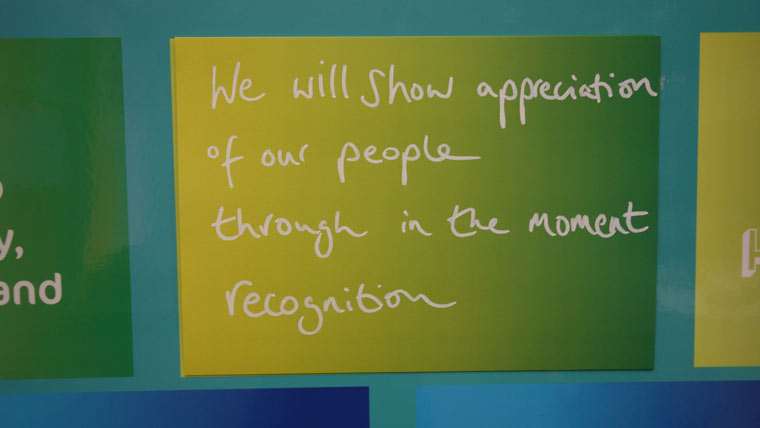 We will show appreciation
of our people
through in the moment
recognition
y,
and